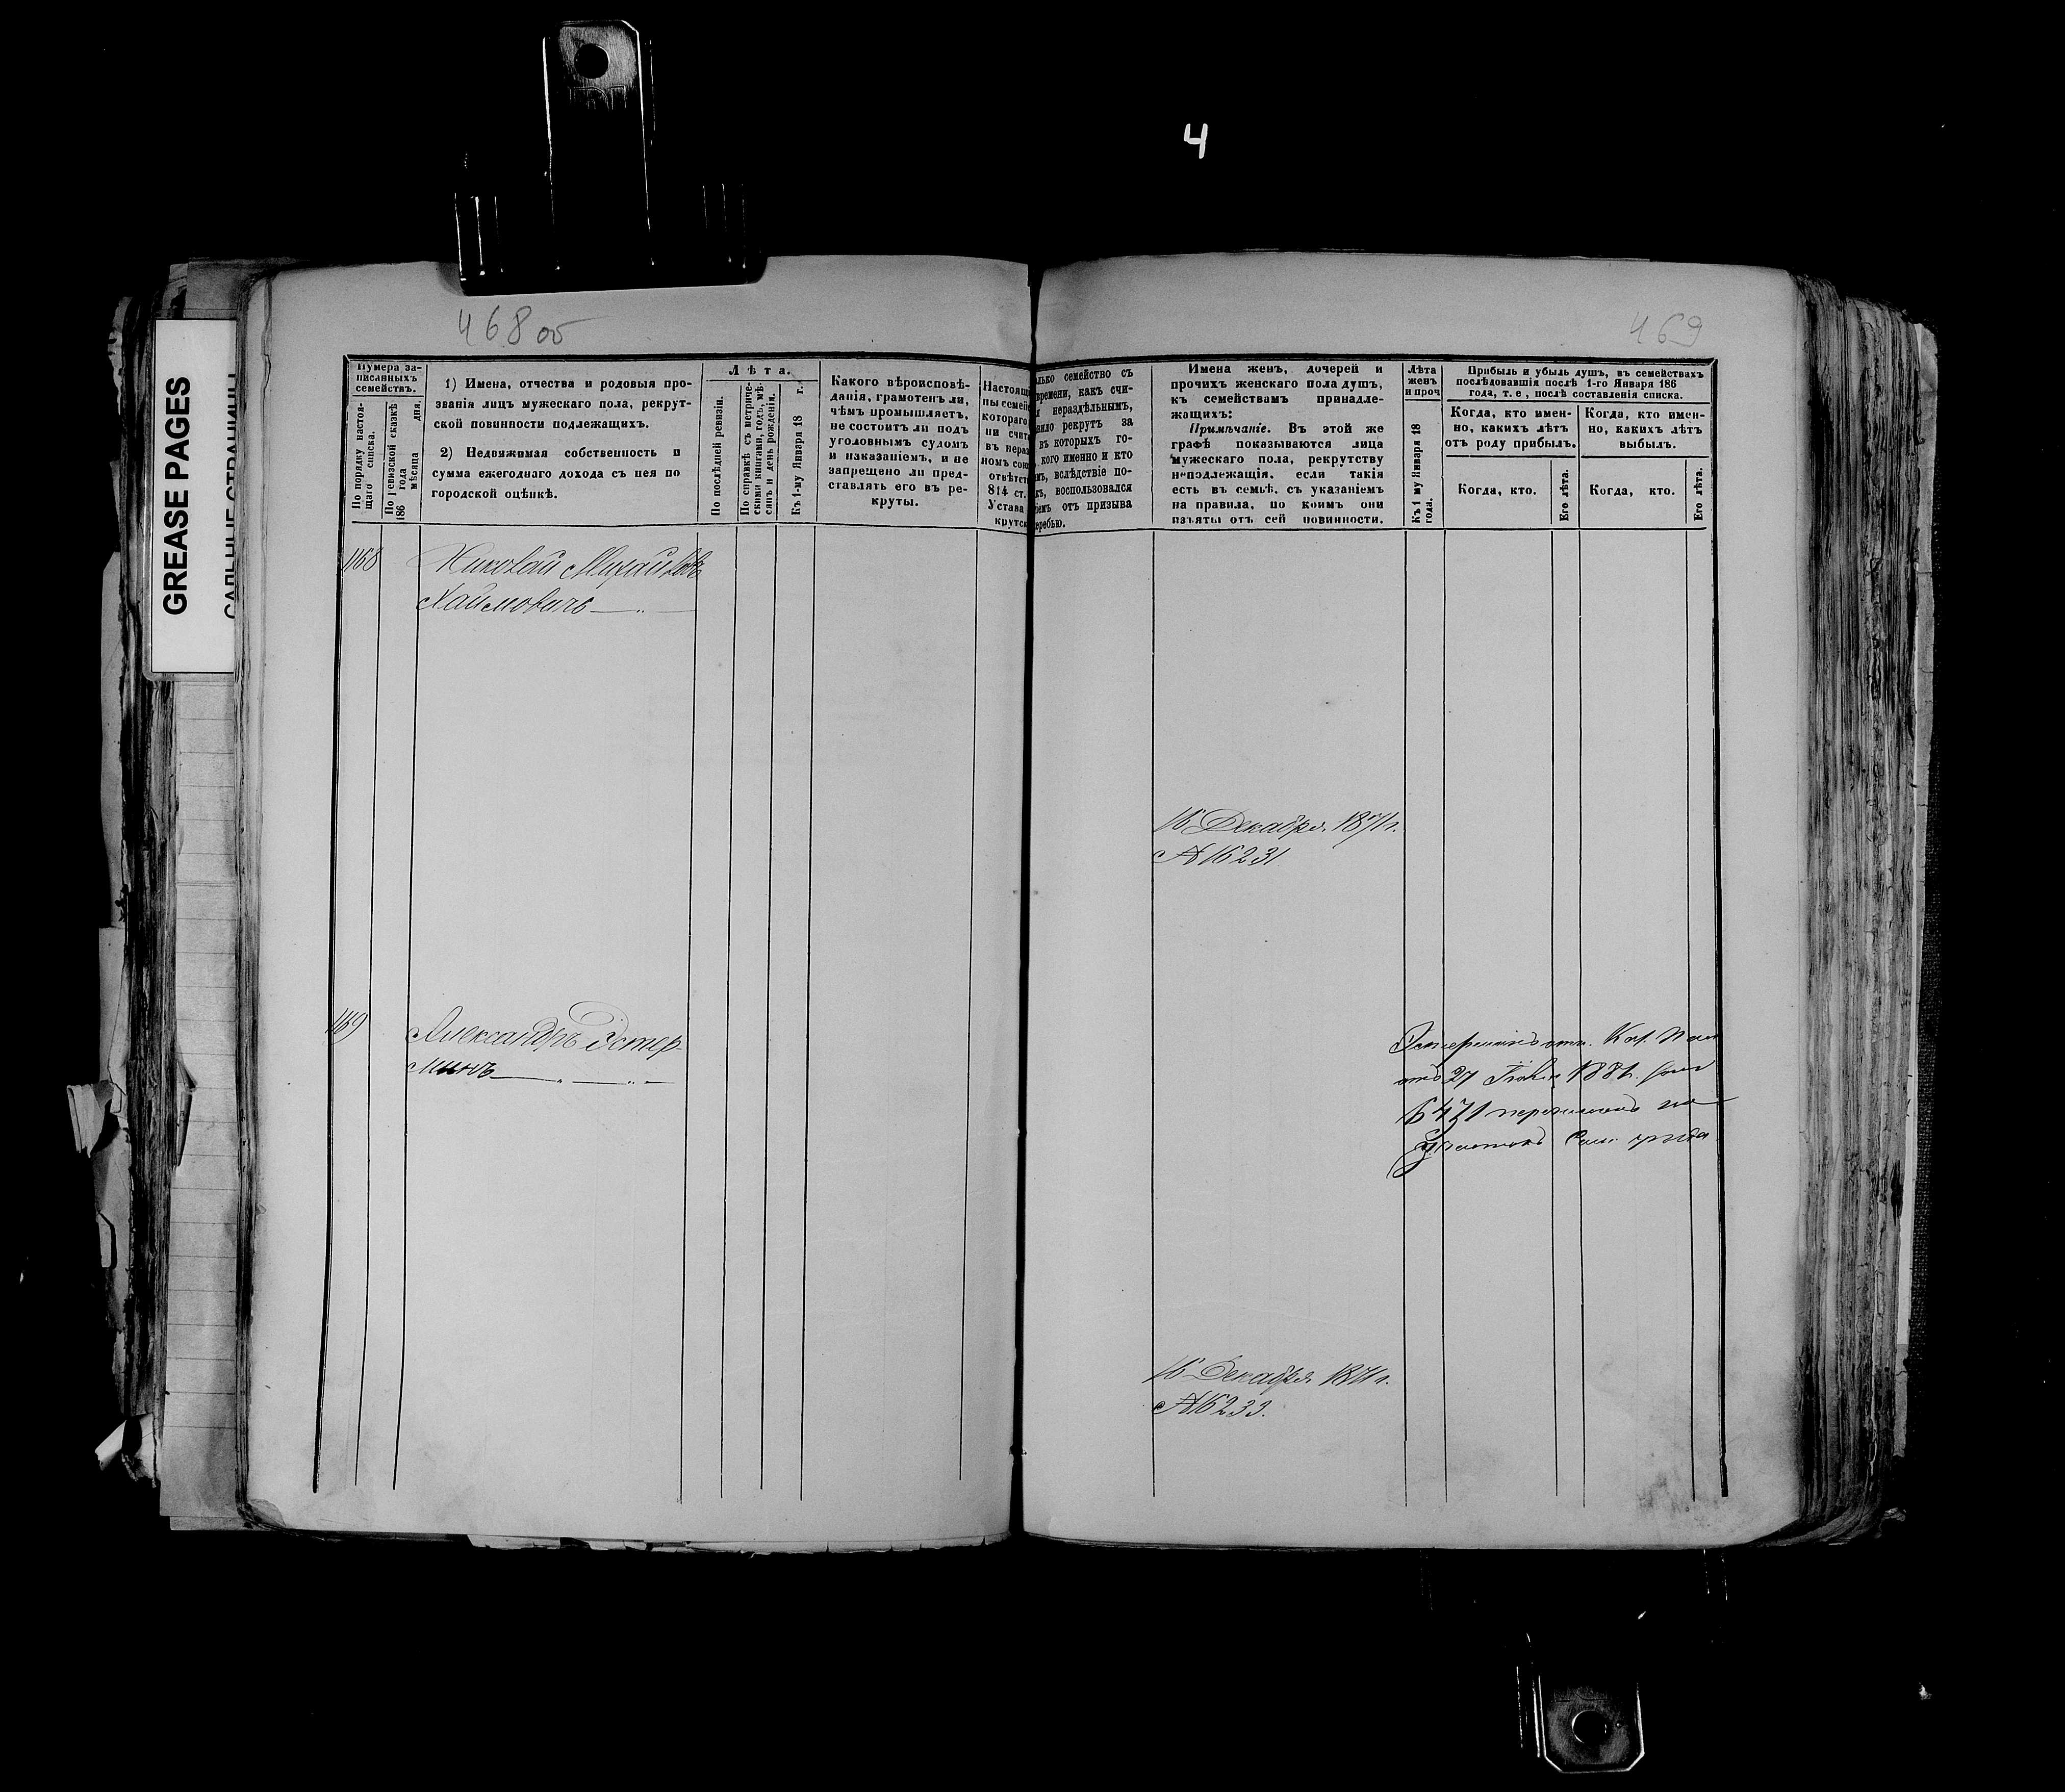 4
GREASE PAGES
468 об
469
Нумера за-
писанныхъ
семействъ.
По порядку настоя-
щаго списка.
По ревизской сказкѣ
186 года
мѣсяца дня.
1) Имена, отчества и родовыя про-
званія лицъ мужескаго пола, рекрут-
ской повинности подлежащихъ.
2) Недвижимая собственность и
сумма ежегоднаго дохода съ нея по
городской оцѣнкѣ.
Лѣта.
По послѣдней ревизіи.
По справкѣ съ метриче-
скими книгами, годъ, мѣ-
сяцъ и день рожденія.
Къ 1-му Января 18 г.
Какого вѣроисповѣ-
данія, грамотенъ ли,
чѣмъ промышляетъ,
не состоитъ ли подъ
уголовнымъ судомъ
и наказаніемъ, и не
запрещено ли пред-
ставлять его въ ре-
круты.
Настоящ
пы семей
котораго
ни счит
въ нераз
номъ сою
отвѣтст
814 ст.
Устава
крутск
лько семейство съ
времени, какъ счи-
нераздѣльнымъ,
вило рекрутъ за
въ которыхъ го-
кого именно и кто
мъ, вслѣдствіе по-
къ, воспользовался
іемъ отъ призыва
еребью.
Имена женъ, дочерей и
прочихъ женскаго пола душъ,
къ семействамъ принадле-
жащихъ:
Примѣчаніе. Въ этой же
графѣ показываются лица
мужескаго пола, рекрутству
неподлежащія, если такія
есть въ семьѣ, съ указаніемъ
на правила, по коимъ они
изъяты отъ сей повинности.
Лѣта
женъ
и проч
Къ 1 му Января 18
года.
Прибыль и убыль душъ, въ семействахъ
послѣдовавшія послѣ 1-го Января 186
года, т. е., послѣ составленія списка.
Когда, кто имен-
но, какихъ лѣтъ
отъ роду прибылъ.
Когда, кто имен-
но, какихъ лѣтъ
выбылъ.
Когда, кто.
Его лѣта.
Когда, кто.
Его лѣта.
1168 Николай Михайловъ
Хаймовичъ
16 Декабря 1871 г.
№ 16231
1169 Александръ Эстер-
минъ
от 27 1881
6471 перечисленъ
16 Декабря 1871 г.
№ 16233.